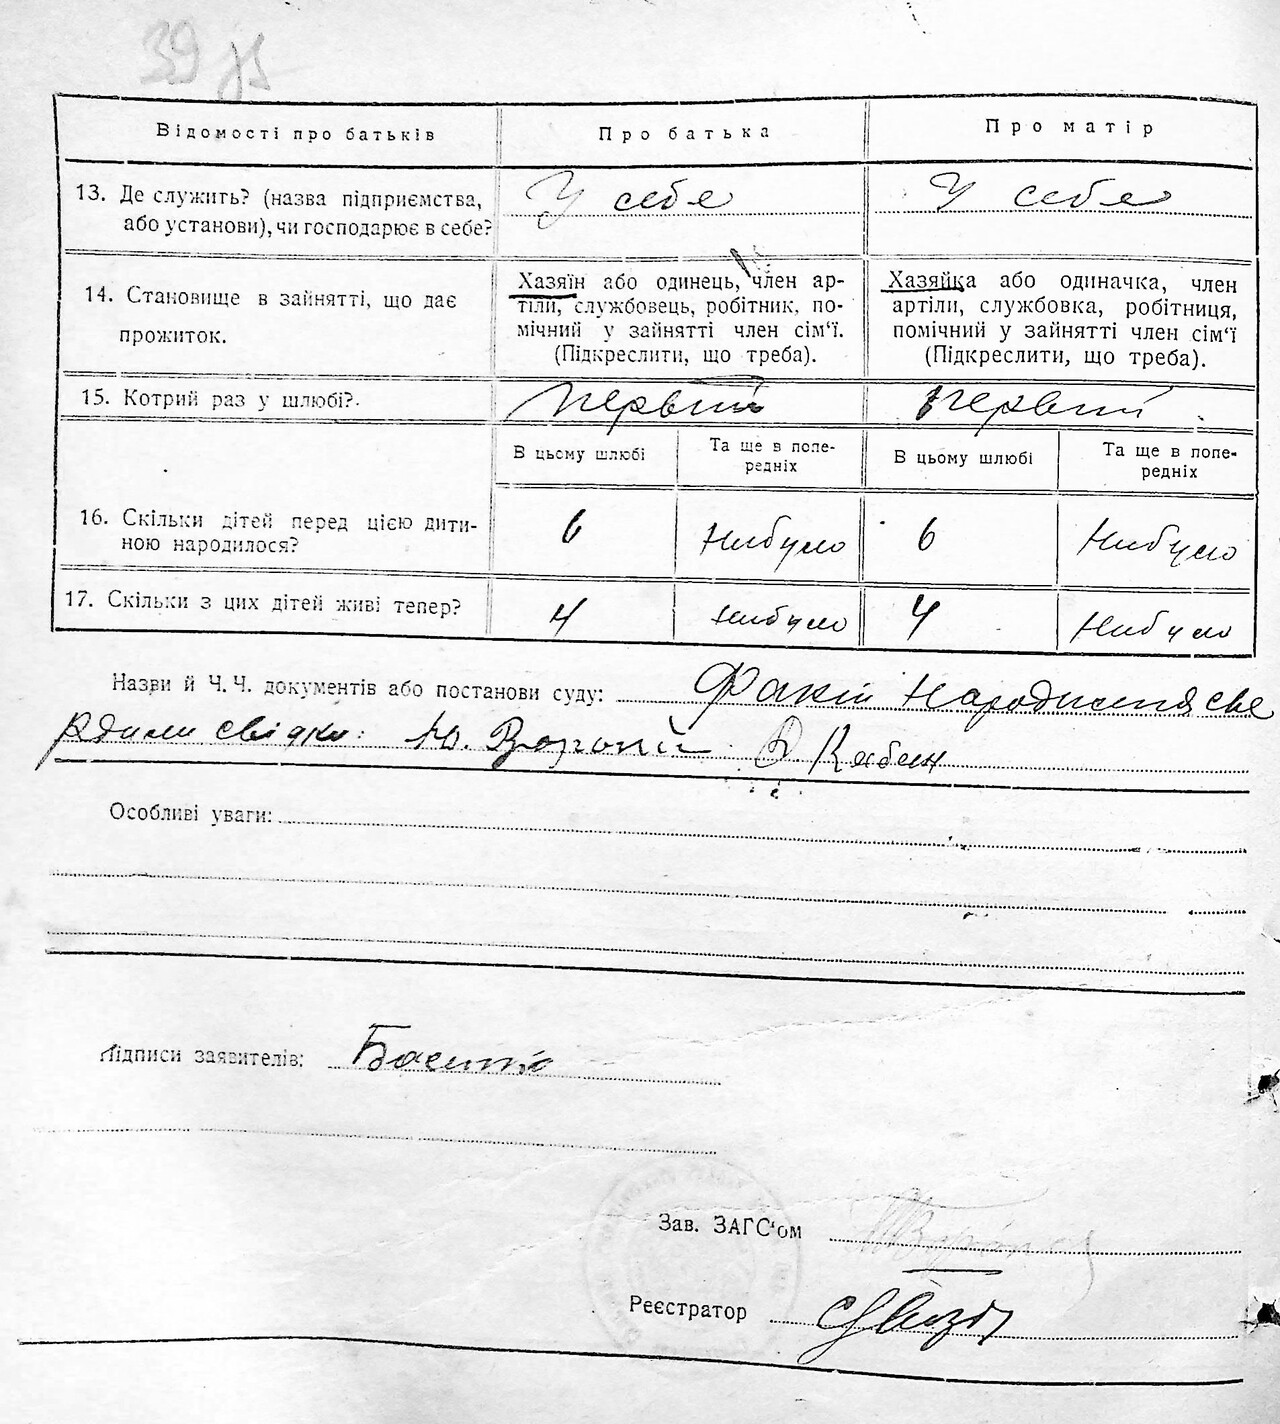 39
Відомості про батьків
Про батька
Про матір
13. Де служить? (назва підприємства,
або установи), чи господарює в себе?
У себе
У себе
14. Становище в зайнятті, що дає
прожиток.
Хазяїн або одинець, член ар-
тіли, службовець, робітник, по-
мічний у зайнятті член сім'ї.
(Підкреслити, що треба).
Хазяйка або одиначка, член
артіли, службовка, робітниця,
помічний у зайнятті член сім'ї
(Підкреслити, що треба).
15. Котрий раз у шлюбі?
первий
первий
В цьому шлюбі
Та ще в попе-
редніх
В цьому шлюбі
Та ще в попе-
редніх
16. Скільки дітей перед цією дити-
ною народилося?
6
Нибуло
6
Нибуло
17. Скільки з цих дітей живі тепер?
4
Нибуло
4
Нибуло
Назви й Ч. Ч. документів або постанови суду:
свідки: Ю. Вороний
Особливі уваги:
Підписи заявителів:
Зав. ЗАГС'ом
Реєстратор